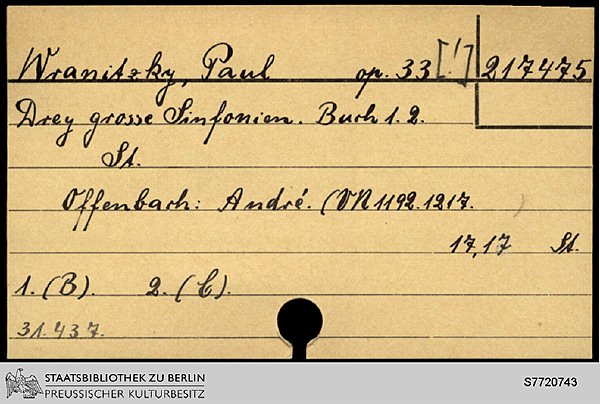 Wranitzky, Paul op. 33[!] 217475
Drey grosse Sinfonien. Buch 1. 2.
St.
Offenbach: André. (VN 1192. 1217. )
17,17 St.
1. (B). 2. (C).
31.437.
STAATSBIBLIOTHEK ZU BERLIN
PREUSSISCHER KULTURBESITZ
S7720743